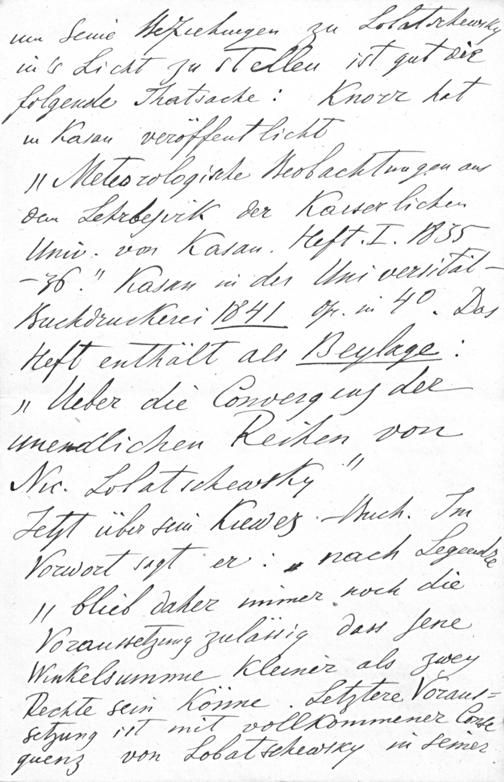 um seine Beziehungen zu Lobatschewsky
in's Licht zu stellen ist gut die
folgende Thatsache: Knorr hat
in Kasan veröffentlicht
„Meteorologische Beobachtungen aus
dem Lehrbezirk der Kaiserlichen
Univ. von Kasan. Heft. I. 1835
–36." Kasan in der Universität-
Buchdruckerei 1841 gr. in 4º. Das
Heft enthält als Beylage:
„Ueber die Convergenz der
unendlichen Reihen von
Nic. Lobatschewsky"
Jetzt über sein Kiewer Buch. Im
Vorwort sagt er: nach Legendre
„blieb daher immer noch die
Voraussetzung zulässig dass jene
Winkelsumme kleiner als zwey
Rechte sein könne. Letztere Voraus=
setzung ist mit vollkommener Conse
quenz von Lobatschewsky in seiner